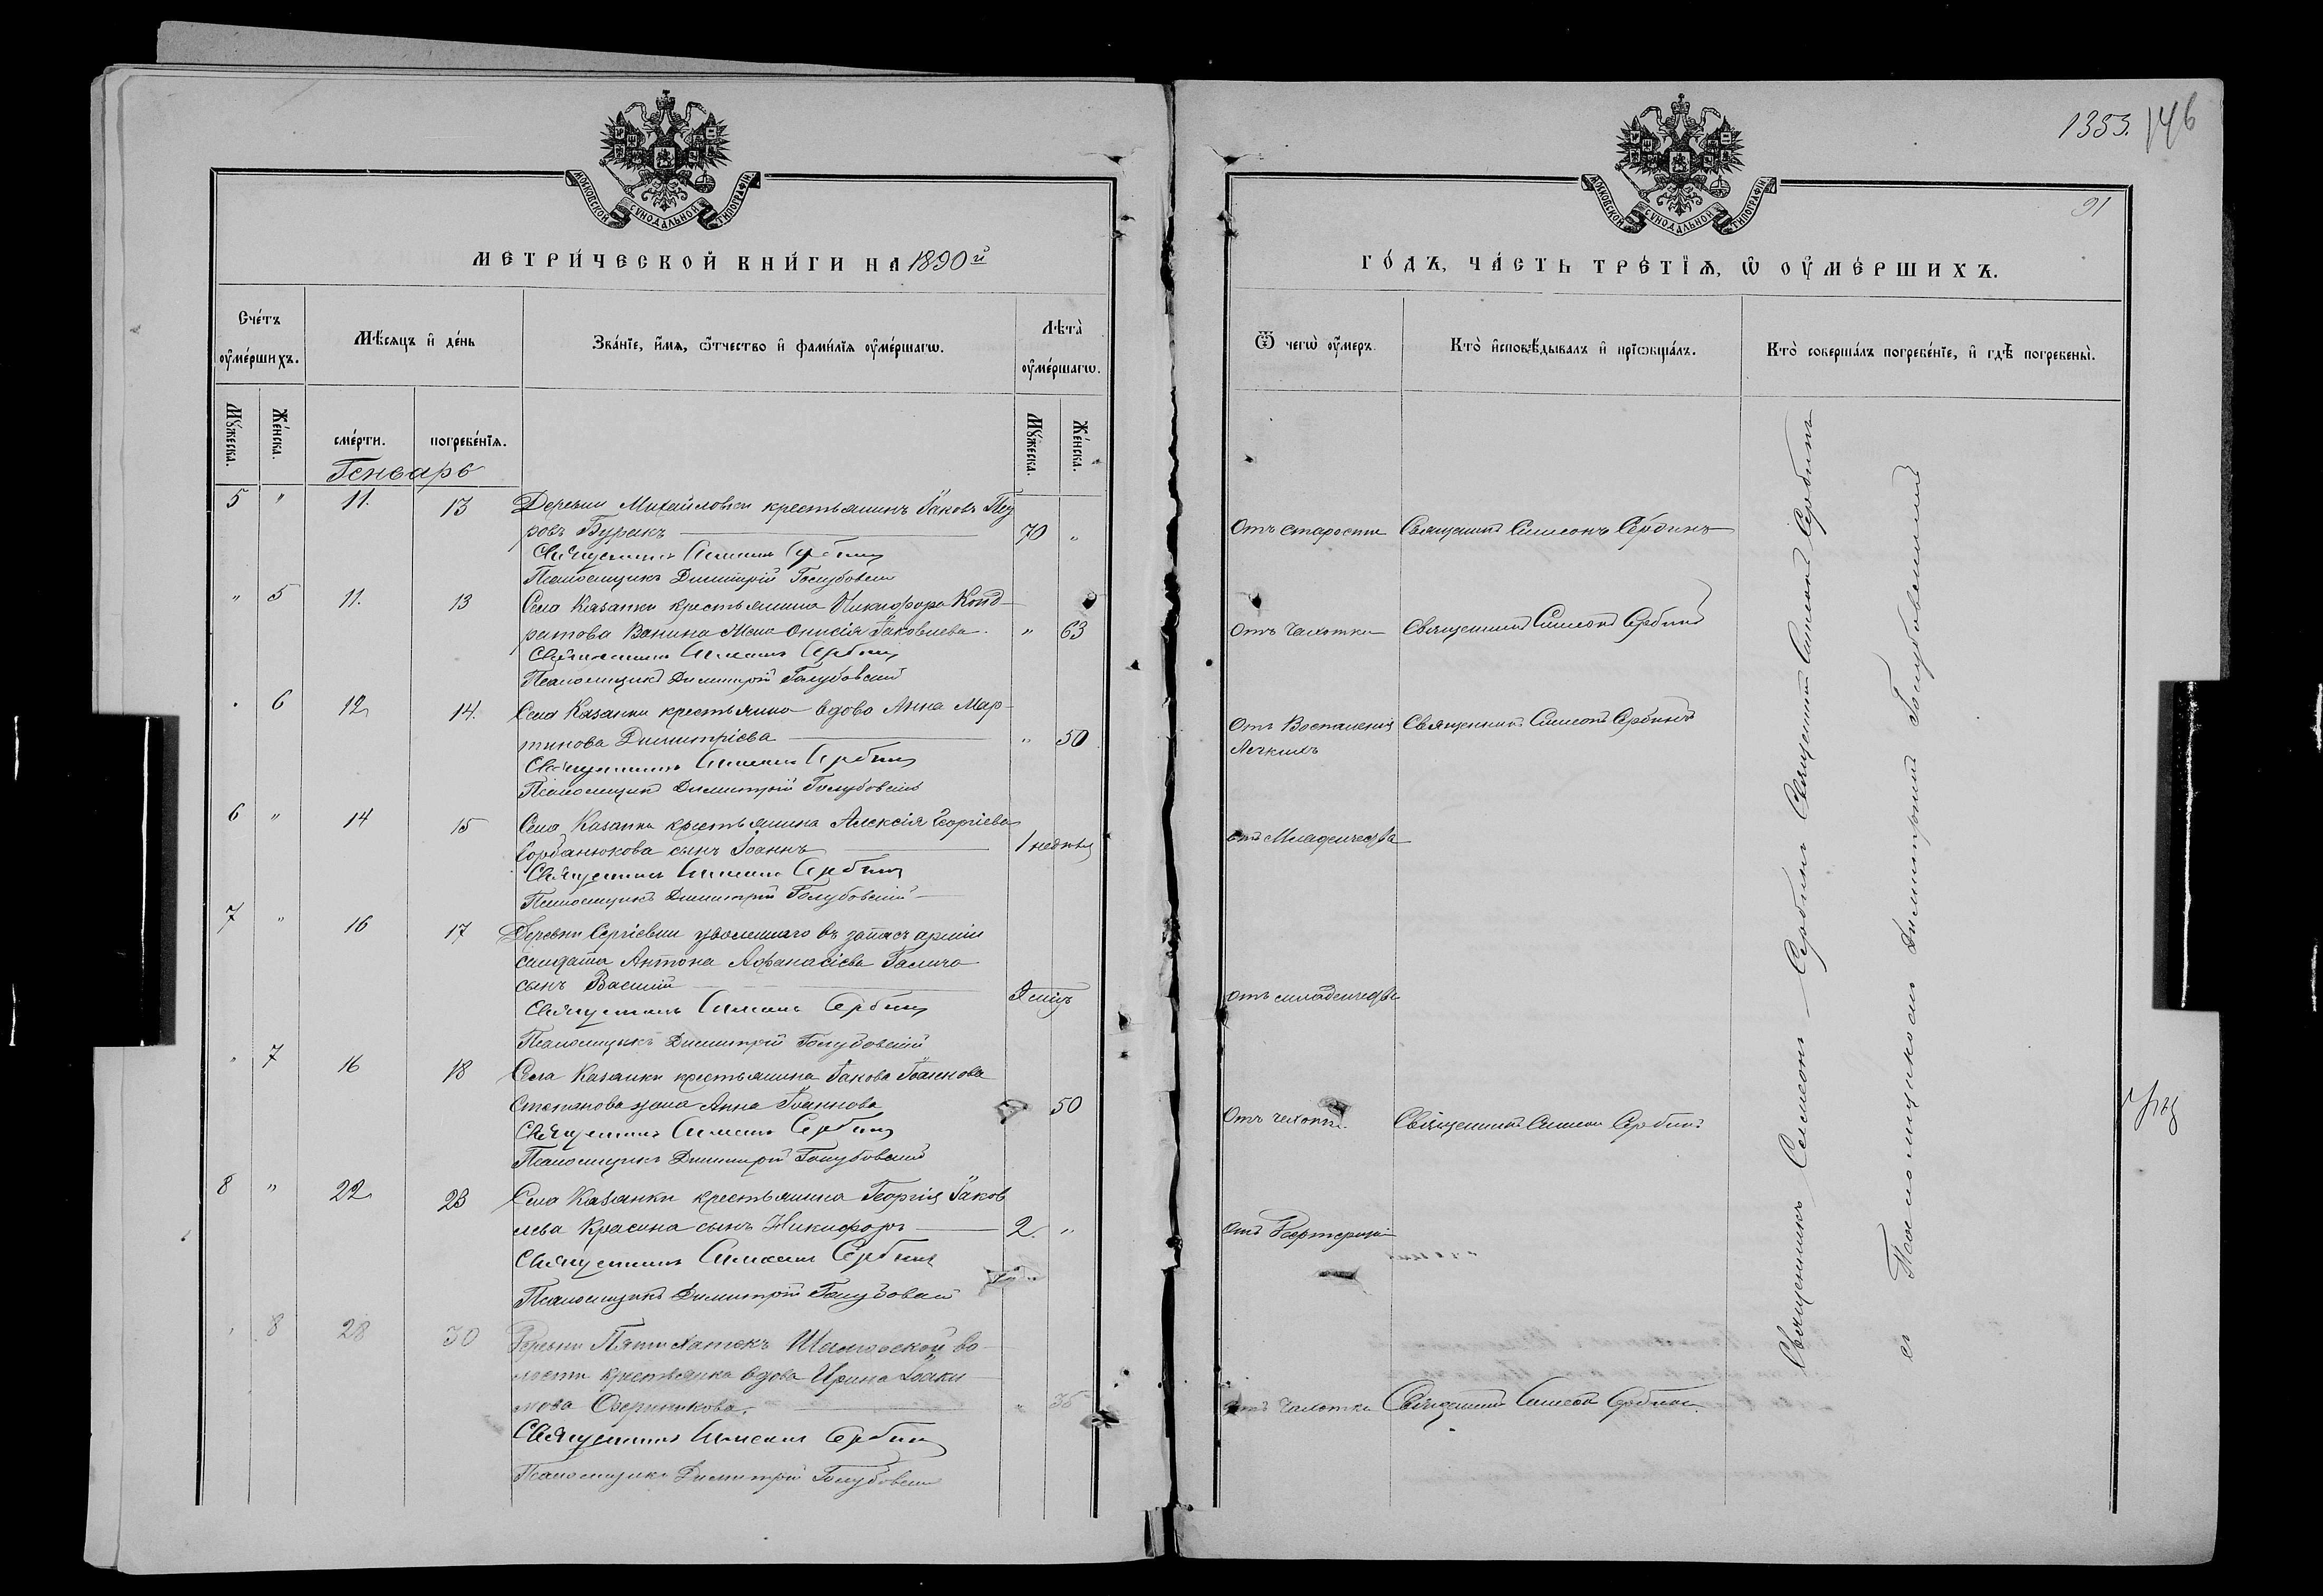 МОСКОВСКОЙ СѴНОДАЛЬНОЙ ТИПОГРАФІИ.
МЕТРИ́ЧЕСКОЙ КНИ́ГИ НА 1890й
Сче́тъ ᲂу҆ме́ршихъ.
Мѣ́сяцъ и҆ де́нь
Зва́нїе, и҆́мя, ѻ҆́тчество и҆ фами́лїя ᲂу҆ме́ршагѡ.
Лѣта̀ ᲂу҆ме́ршагѡ.
Мꙋ́жеска.
Же́нска.
сме́рти.
погребе́нїя.
Мꙋ́жеска.
Же́нска.
Генварь
5 " 11. 13 Деревни Михайловки крестьянинъ Іаковъ
ровъ Буракъ 70 "
Священникъ Симеонъ Сербинъ
Псаломщикъ Димитрій Голубовскій
" 5 11. 13 Села Казанки крестьянина Никифора Конд-
ратова Ванина жена Онисія Іаковлева. " 63
Священникъ Симеонъ Сербинъ
Псаломщикъ Димитрій Голубовскій
" 6 12 14. Села Казанки крестьянка вдова Анна Мар-
тинова Димитріева " 50
Священникъ Симеонъ Сербинъ
Псаломщикъ Димитрій Голубовскій
6 " 14 15 Села Казанки крестьянина Алексія Георгіева
Горбанюкова сынъ Іоаннъ 1 недѣля
Священникъ Симеонъ Сербинъ
Псаломщикъ Димитрій Голубовскій
7 " 16 17 Деревни Сергіевки уволеннаго въ запасъ арміи
солдата Антона Афанасіева Галича
сынъ Василій
Священникъ Симеонъ Сербинъ
Псаломщикъ Димитрій Голубовскій
" 7 16 18 Села Казанки крестьянина Іакова Іоаннова
Степанова жена Анна Іоаннова 50
Священникъ Симеонъ Сербинъ
Псаломщикъ Димитрій Голубовскій
8 " 22 23 Села Казанки крестьянина Георгія Іаков
лева Красина сынъ Никифоръ 2. "
Священникъ Симеонъ Сербинъ
Псаломщикъ Димитрій Голубовскій
" 8 28 30 Деревни Пятихатокъ во-
лости крестьянка вдова Ирина Іоаки
мова "
Священникъ Симеонъ Сербинъ
Псаломщикъ Димитрій Голубовскій
1353. 146
91
МОСКОВСКОЙ СѴНОДАЛЬНОЙ ТИПОГРАФІИ.
ГО́ДЪ, ЧА́СТЬ ТРЕ́ТЇѦ, Ѡ҆ ОУ҆МЕ́РШИХЪ.
Ѿ чегѡ̀ ᲂу҆́меръ.
Кто̀ и҆сповѣ́дывалъ и҆ прїѡбща́лъ.
Кто̀ соверша́лъ погребе́нїе, и҆ гдѣ̀ погребены̀.
Отъ старости Священникъ Симеонъ Сербинъ
Отъ чахотки Священникъ Симеонъ Сербинъ
Отъ Воспаленія Священникъ Симеонъ Сербинъ
Легкихъ
отъ Младенчества
отъ младенчества
Отъ чахотки. Священникъ Симеонъ Сербинъ
отъ чахотки Священникъ Симеонъ Сербинъ.
Священникъ Симеонъ Сербинъ Священникъ Симеонъ Сербинъ
съ Псаломщикомъ Димитріемъ Голубовскимъ